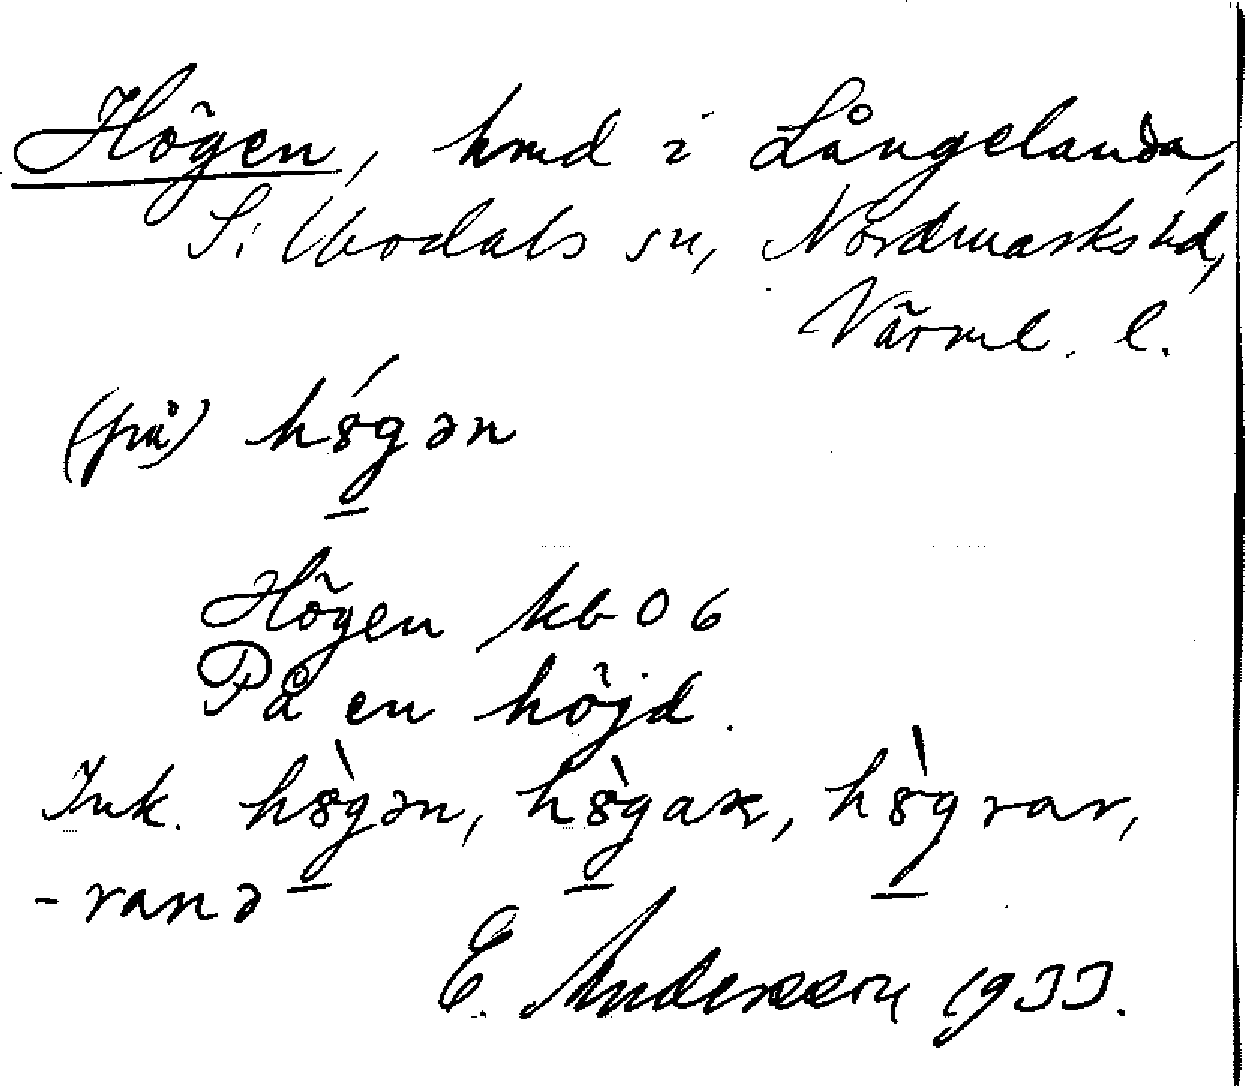 Högen, hmd i Långelanda,
Sillbodals sn, Nordmarks hd,
Värml. l.
(på) hǿgən
Högen kb 06
På en höjd.
Ink. hø̀gən, hø̀gar, hø̀grar,
-ranə
E. Andersson 1933.